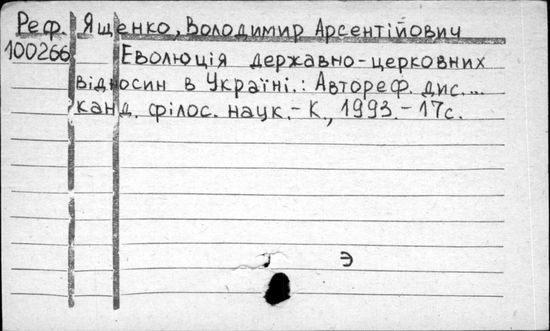 Реф. Ященко, Володимир Арсентійович
100266 Еволюція державно-церковних
відносин в Україні.: Автореф. дис. ...
канд. філос. наук.- К., 1993.- 17с.
Э